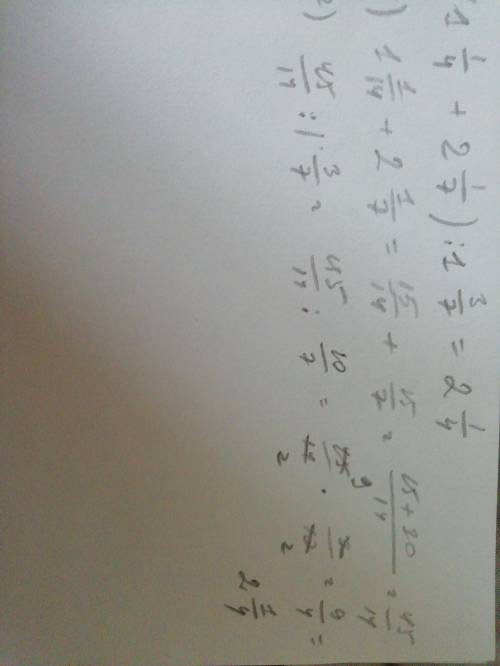 1 1/4 + 2 1/7) : 1 3/7 = 2 1/4
) 1 1/14 + 2 1/7 = 15/14 + 15/7 = (15+30)/14 = 45/14
) 45/14 : 1 3/7 = 45/14 : 10/7 = 45 9/14 2 · 7/10 2 = 9/4 =
2 1/4